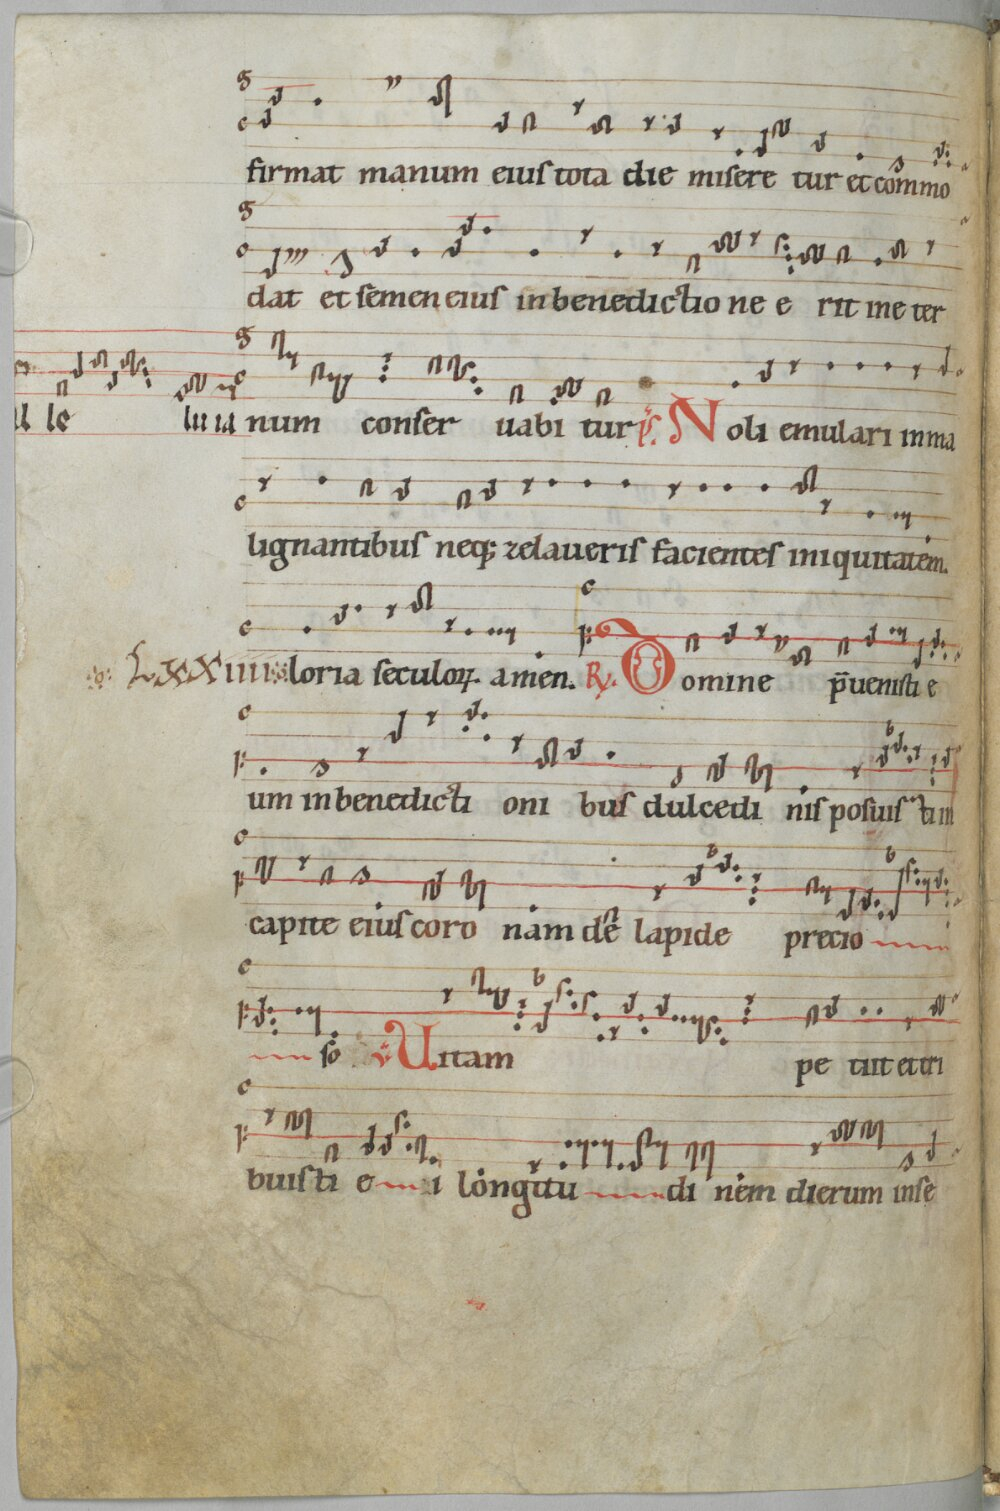 firmat manum eius tota die misere tur et commo
dat et semen eius in benedictio ne e rit in e ter
le lu ia num conser uabi tur ps. Noli emulari in ma
lignantibus neq; zelaueris facientes iniquitatem.
LXXIIII loria seculoꝝ amen. ℟. Domine p̄uenisti e
um in benedicti oni bus dulcedi nis posuis ti in
capite eius coro nam de lapide precio
so ℣. Uitam pe tiit et tri
buisti e i longitu di nem dierum in se